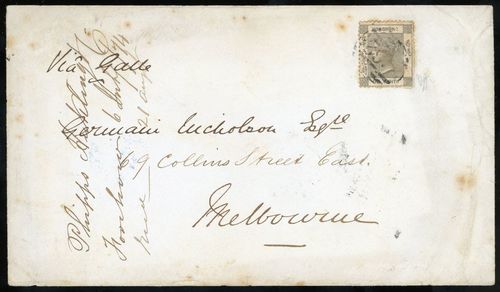 Via Galle
Germain Nicholson Esqre
69 Collins Street East.
Melbourne
Phipps
Foochow 6 July
21 Augt